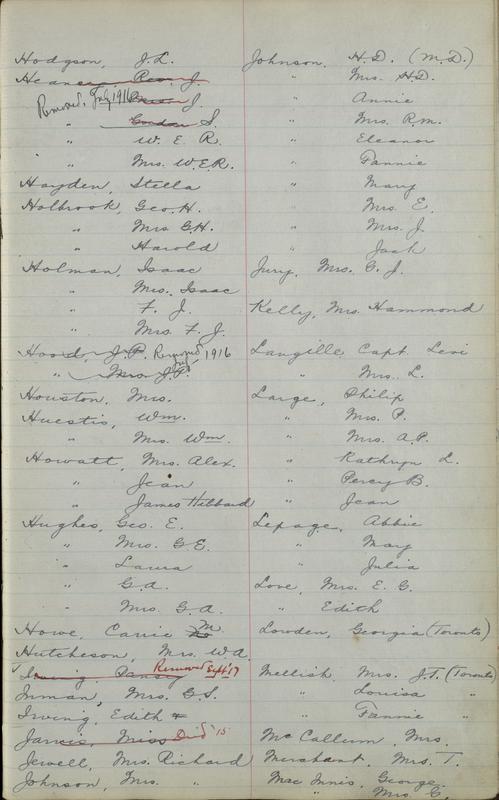 Hodgson, J.L.
Heaney Rev. J.
Removed, July 1916 J.
" Gordon S.
" W. E. R.
" Mrs. W.E.R.
Hayden, Stella
Holbrook, Geo. H.
" Mrs G.H.
" Harold
Holman, Isaac
" Mrs. Isaac
" F. J.
" Mrs. F. J.
Hood, J.P. Removed 1916
" Mrs. J.P.
Houston, Mrs.
Huestis, Wm.
" Mrs. Wm.
Howatt, Mrs. Alex.
" Jean
" James Hibbard
Hughes, Geo. E.
" Mrs. G.E.
" Laura
" G.A.
" Mrs. G.A.
Howe, Carrie M.
Hutcheson, Mrs. W.A.
Irving Pansy Removed Sept '17
Inman, Mrs. G.S.
Irving, Edith
Jarvis, Miss Died '15
Jewell, Mrs. Richard
Johnson, Mrs. "
Johnson, H.D. (M.D.)
" Mrs. H.D.
" Annie
" Mrs. R.M.
" Eleanor
" Fannie
" Mary
" Mrs. E.
" Mrs. J.
" Jack
Jury, Mrs. C. J.
Kelly, Mrs. Hammond
Langille, Capt. Levi
" Mrs. L.
Large, Philip
" Mrs. P.
" Mrs. A.P.
" Kathryn L.
" Percy B.
" Jean
Lepage, Abbie
" May
" Julia
Love, Mrs. E. G.
" Edith
Lowden, Georgia (Toronto)
Mellish, Mrs. J.T. (Toronto)
" Louisa "
" Fannie "
McCallum, Mrs.
Merchant, Mrs. T.
MacInnis, George
" Mrs. G.